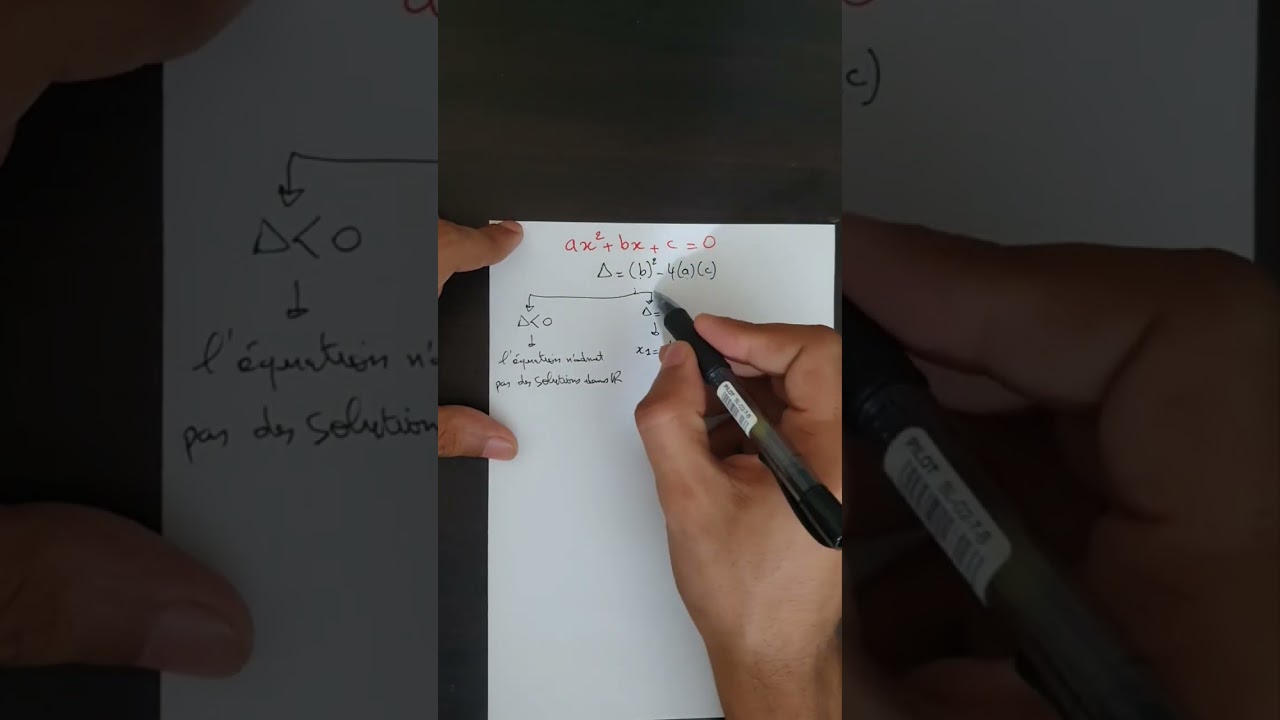 ax² + bx + c = 0
Δ = (b)² - 4(a)(c)
Δ < 0
Δ =
l'équation n'admet
x1 =
pas des solutions dans IR
PILOT